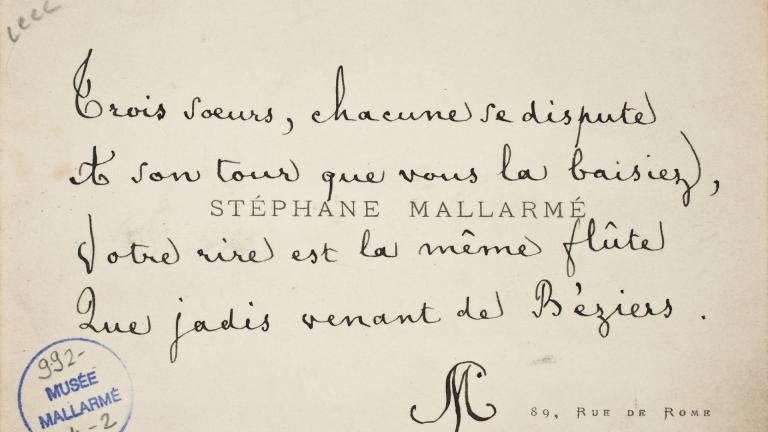 Trois sœurs, chacune se dispute
A son tour que vous la baisiez,
STÉPHANE MALLARMÉ
Votre rire est la même flûte
Que jadis venant de Béziers.
M
89, RUE DE ROME
992-
MUSÉE
MALLARMÉ
-2